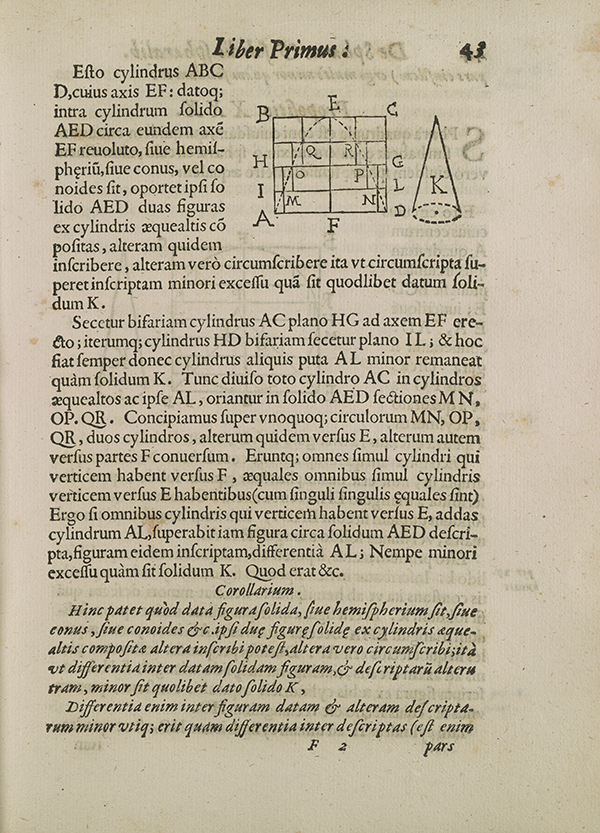 Liber Primus. 43
Esto cylindrus ABC
D,cuius axis EF: datoq;
intra cylindrum solido
AED circa eundem axē
EF reuoluto, siue hemis-
phęriū, siue conus, vel co
noides sit, oportet ipsi so
lido AED duas figuras
ex cylindris æquealtis cō
positas, alteram quidem
inscribere, alteram verò circumscribere ita vt circumscripta su-
peret inscriptam minori excessu quā sit quodlibet datum soli-
dum K.
B E C
H Q R G
I O P L K
A M N D
F
Secetur bifariam cylindrus AC plano HG ad axem EF ere-
cto; iterumq; cylindrus HD bifariam secetur plano IL; & hoc
fiat semper donec cylindrus aliquis puta AL minor remaneat
quàm solidum K. Tunc diuiso toto cylindro AC in cylindros
æquealtos ac ipse AL, oriantur in solido AED sectiones MN,
OP. QR. Concipiamus super vnoquoq; circulorum MN, OP,
QR, duos cylindros, alterum quidem versus E, alterum autem
versus partes F conuersum. Eruntq; omnes simul cylindri qui
verticem habent versus F, æquales omnibus simul cylindris
verticem versus E habentibus(cum singuli singulis ęquales sint)
Ergo si omnibus cylindris qui verticem habent versus E, addas
cylindrum AL,superabit iam figura circa solidum AED descri-
pta,figuram eidem inscriptam,differentià AL; Nempe minori
excessu quàm sit solidum K. Quod erat &c.
Corollarium.
Hinc patet quòd datâ figura solida, siue hemispherium sit, siue
conus, siue conoides &c. ipsi duę figurę solidę ex cylindris æque-
altis compositæ altera inscribi potest, altera vero circumscribi; ita
vt differentia inter datam solidam figuram, & descriptarū alteru
tram, minor sit quolibet dato solido K,
Differentia enim inter figuram datam & alteram descripta-
rum minor vtiq; erit quam differentia inter descriptas (est enim
F 2 pars